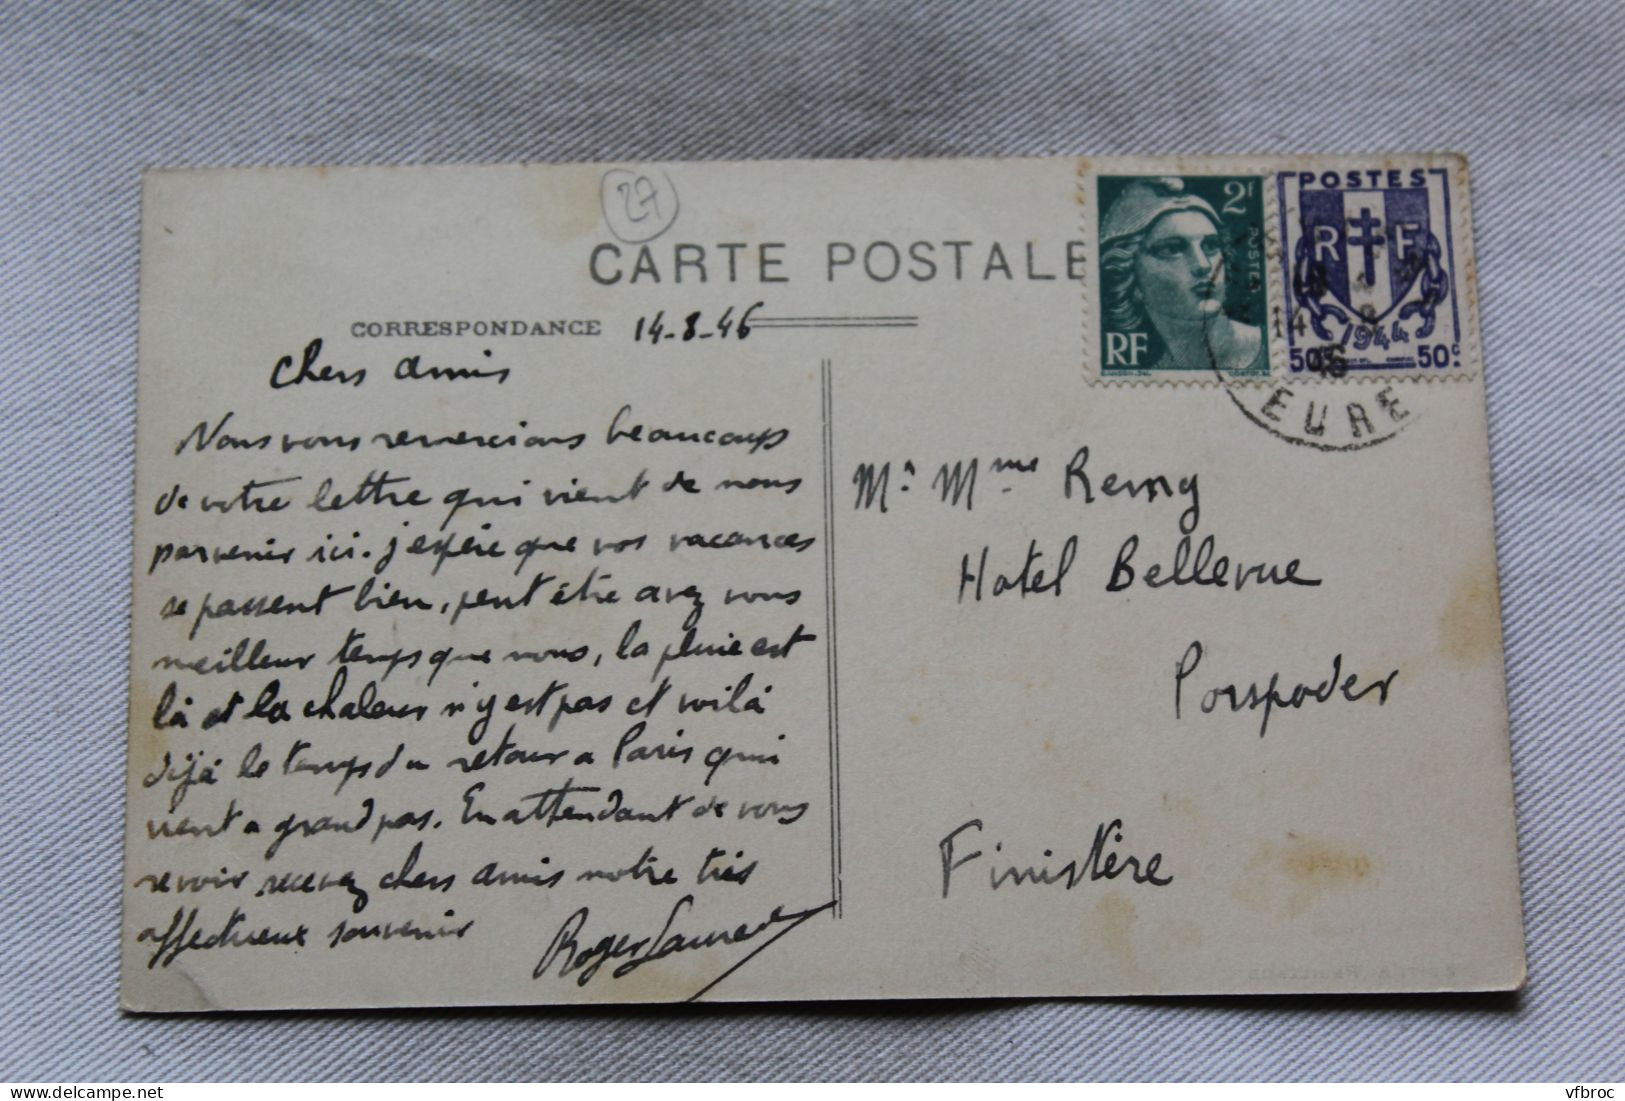 27
CARTE POSTALE
CORRESPONDANCE
14-8-46
Chers amis
Nous vous remercions beaucoup
de votre lettre qui vient de nous
parvenir ici. j'espère que vos vacances
se passent bien, peut être avez vous
meilleur temps que nous, la pluie est
là et la chaleur n'y est pas et voilà
déjà le temps du retour a Paris qui
vient a grand pas. En attendant de vous
revoir recevez chers amis notre très
affectueux souvenir
Roger
2f
POSTES
RF
POSTES
R F
1944
50c 50c
14 8
46
EURE
Mr Mme Remy
Hotel Bellevue
Porspoder
Finistère
delcampe.net
vfbroc